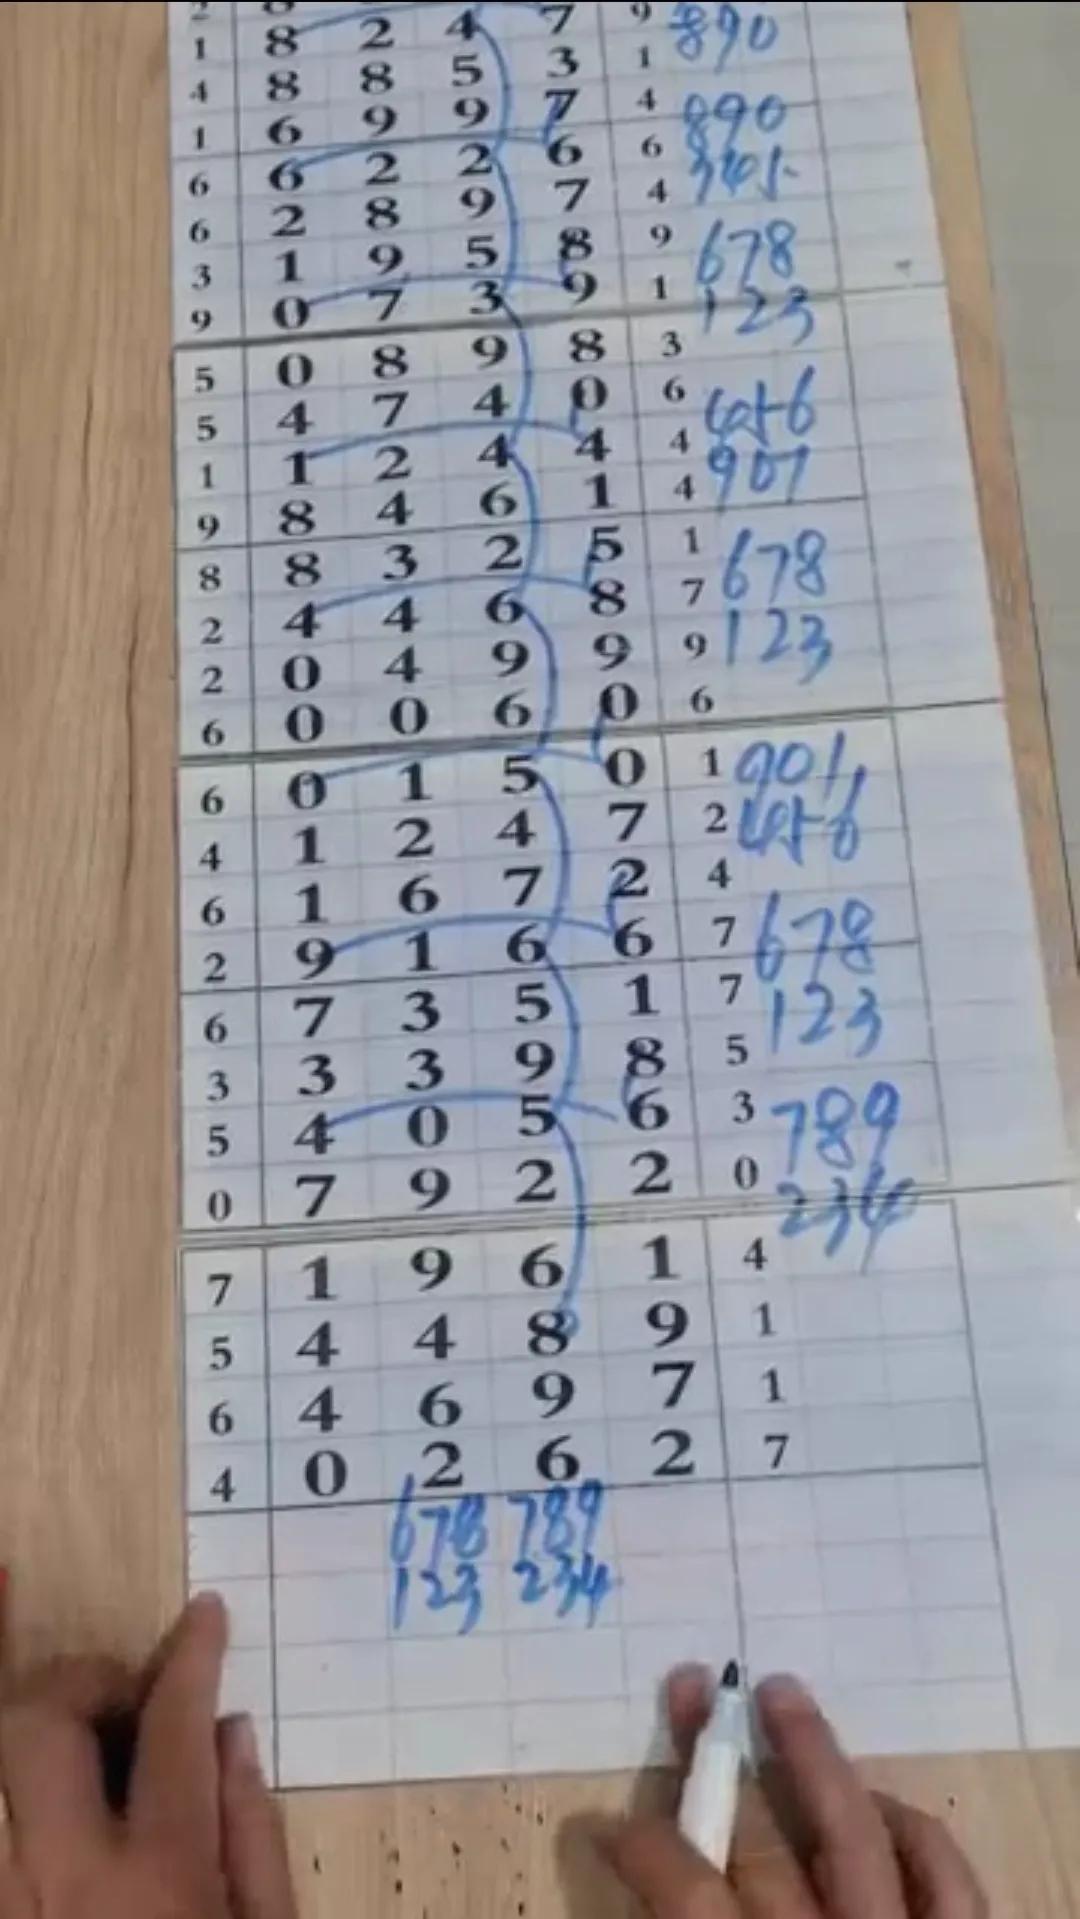 1 8 2 4 7 9 890
4 8 8 5 3 1
1 6 9 9 7 4 890
6 6 2 2 6 6 345
6 2 8 9 7 4
3 1 9 5 8 9 678
9 0 7 3 9 1 123
5 0 8 9 8 3
5 4 7 4 0 6 456
1 1 2 4 4 4 901
9 8 4 6 1 4
8 8 3 2 5 1 678
2 4 4 6 8 7
2 0 4 9 9 9 123
6 0 0 6 0 6
6 0 1 5 0 1 901
4 1 2 4 7 2 456
6 1 6 7 2 4
2 9 1 6 6 7 678
6 7 3 5 1 7 123
3 3 3 9 8 5
5 4 0 5 6 3 789
0 7 9 2 2 0 234
7 1 9 6 1 4
5 4 4 8 9 1
6 4 6 9 7 1
4 0 2 6 2 7
678 789
123 234